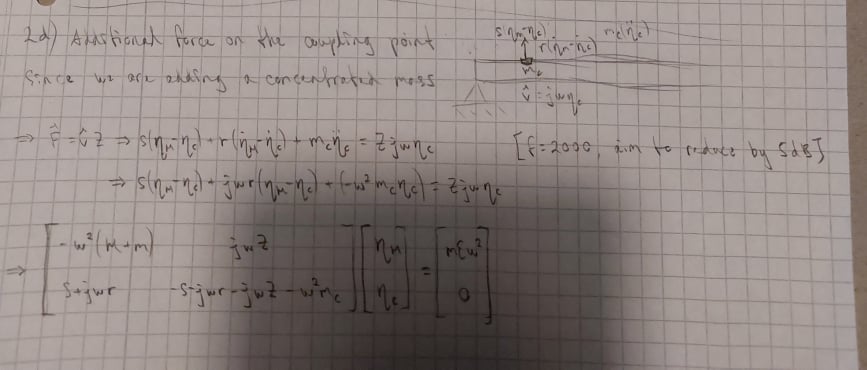 2d) Additional force on the coupling point
since we are adding a concentrated mass
s(η_M-η_c) r(η̇_M-η̇_c) m_c(η̈_c)
m_c
v̂ = jωη_c
⇒ F̂ = v̂ Z ⇒ s(η_M-η_c) + r(η̇_M-η̇_c) + m_c η̈_c = Z jωη_c [f=2000, aim to reduce by 5dB]
⇒ s(η_M-η_c) + jωr(η_M-η_c) + (-ω² m_c η_c) = Z jωη_c
⇒ [ -ω²(M+m) jωZ ] [ η_M ] = [ mεω² ]
[ s+jωr -s-jωr-jωZ-ω²m_c ] [ η_c ] [ 0 ]